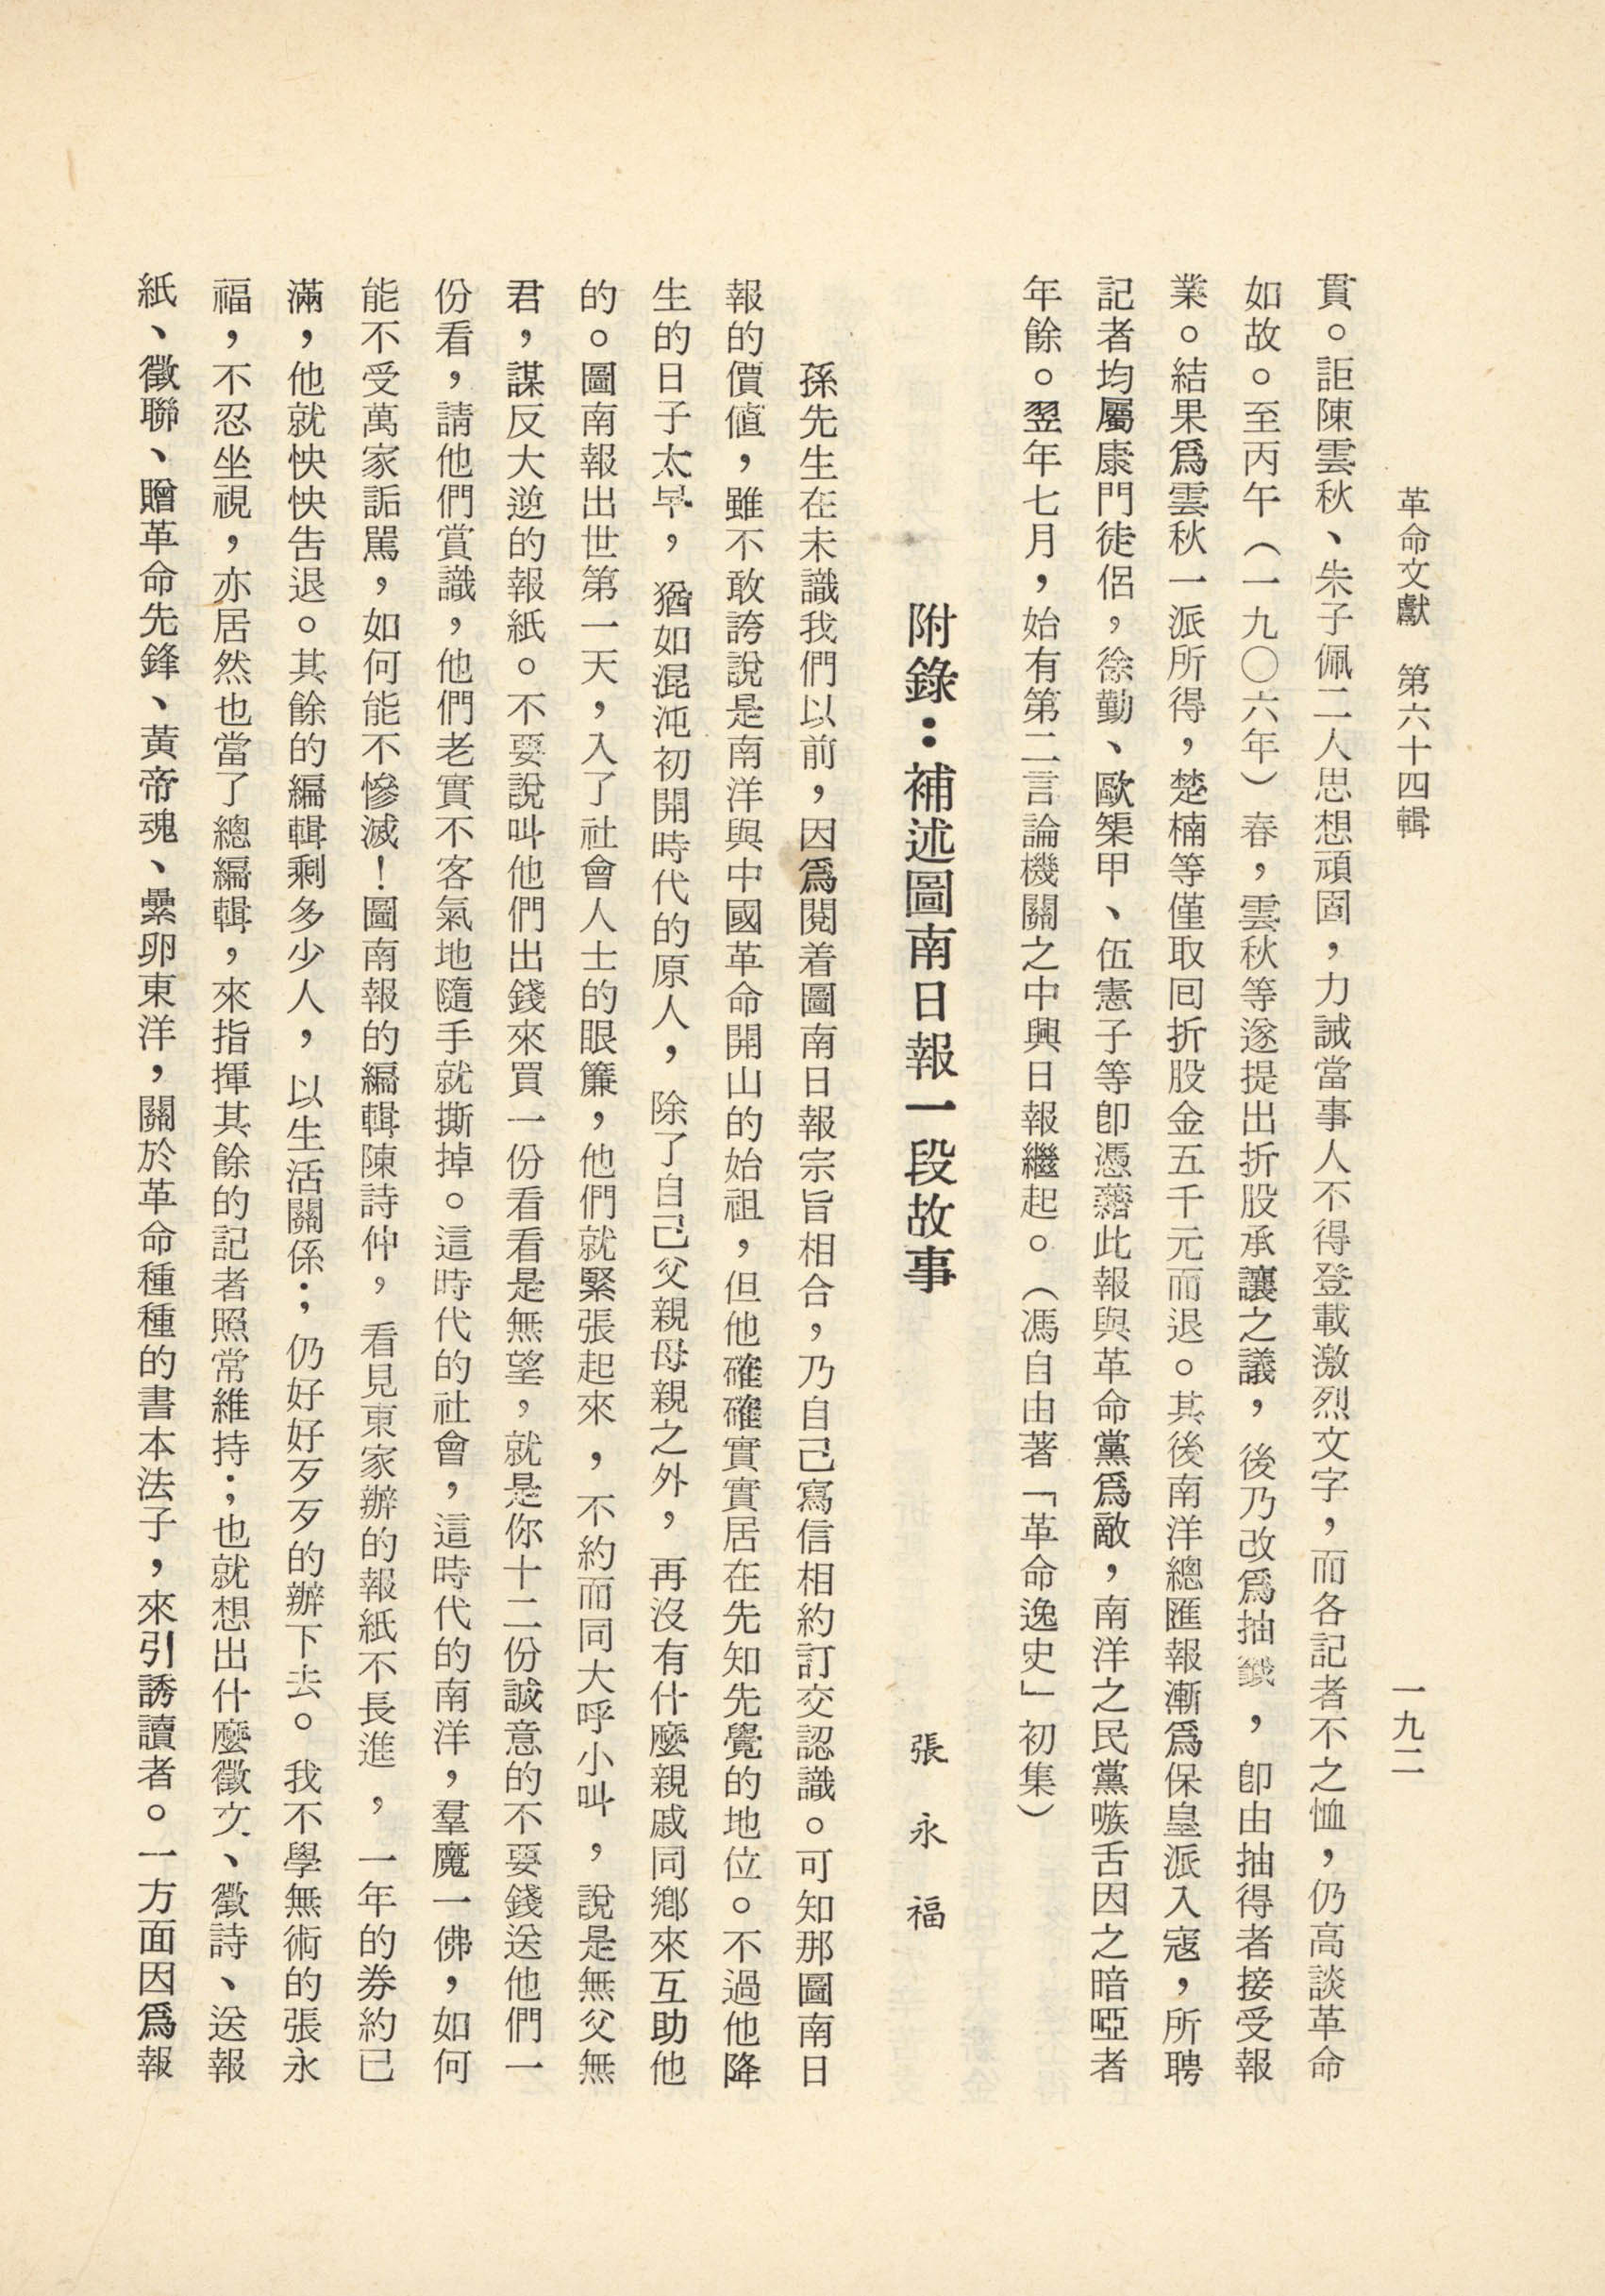 革命文獻　第六十四輯
一九二
貫。詎陳雲秋、朱子佩二人思想頑固，力誡當事人不得登載激烈文字，而各記者不之恤，仍高談革命
如故。至丙午（一九〇六年）春，雲秋等遂提出折股承讓之議，後乃改爲抽籤，卽由抽得者接受報
業。結果爲雲秋一派所得，楚楠等僅取囘折股金五千元而退。其後南洋總匯報漸爲保皇派入寇，所聘
記者均屬康門徒侶，徐勤、歐榘甲、伍憲子等卽憑藉此報與革命黨爲敵，南洋之民黨嗾舌因之暗啞者
年餘。翌年七月，始有第二言論機關之中興日報繼起。（馮自由著「革命逸史」初集）
附錄：補述圖南日報一段故事
張永福
孫先生在未識我們以前，因爲閱着圖南日報宗旨相合，乃自己寫信相約訂交認識。可知那圖南日
報的價值，雖不敢誇說是南洋與中國革命開山的始祖，但他確確實實居在先知先覺的地位。不過他降
生的日子太早，猶如混沌初開時代的原人，除了自己父親母親之外，再沒有什麼親戚同鄉來互助他
的。圖南報出世第一天，入了社會人士的眼簾，他們就緊張起來，不約而同大呼小叫，說是無父無
君，謀反大逆的報紙。不要說叫他們出錢來買一份看看是無望，就是你十二份誠意的不要錢送他們一
份看，請他們賞識，他們老實不客氣地隨手就撕掉。這時代的社會，這時代的南洋，羣魔一佛，如何
能不受萬家詬罵，如何能不慘滅！圖南報的編輯陳詩仲，看見東家辦的報紙不長進，一年的券約已
滿，他就怏怏吿退。其餘的編輯剩多少人，以生活關係；仍好好歹歹的辦下去。我不學無術的張永
福，不忍坐視，亦居然也當了總編輯，來指揮其餘的記者照常維持；也就想出什麼徵文、徵詩、送報
紙、徵聯、贈革命先鋒、黃帝魂、纍卵東洋，關於革命種種的書本法子，來引誘讀者。一方面因爲報